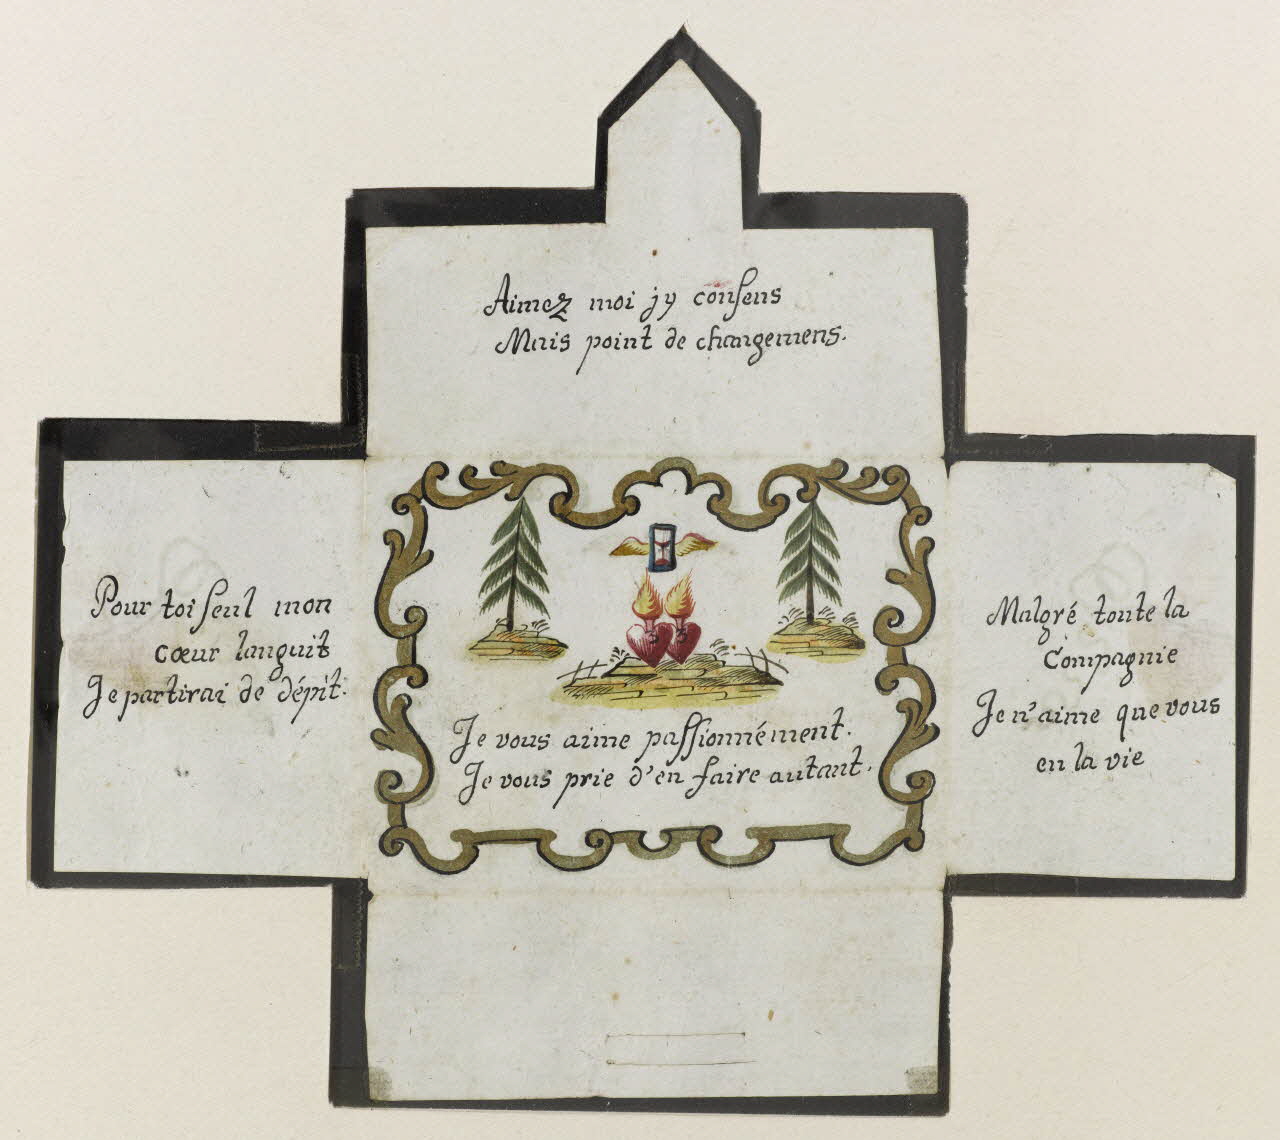 Aimez moi jy consens
Mais point de changemens.
Pour toi seul mon
cœur languit
Je partirai de dépit.
Je vous aime passionnément.
Je vous prie d'en faire autant.
Malgré toute la
Compagnie
Je n'aime que vous
en la vie